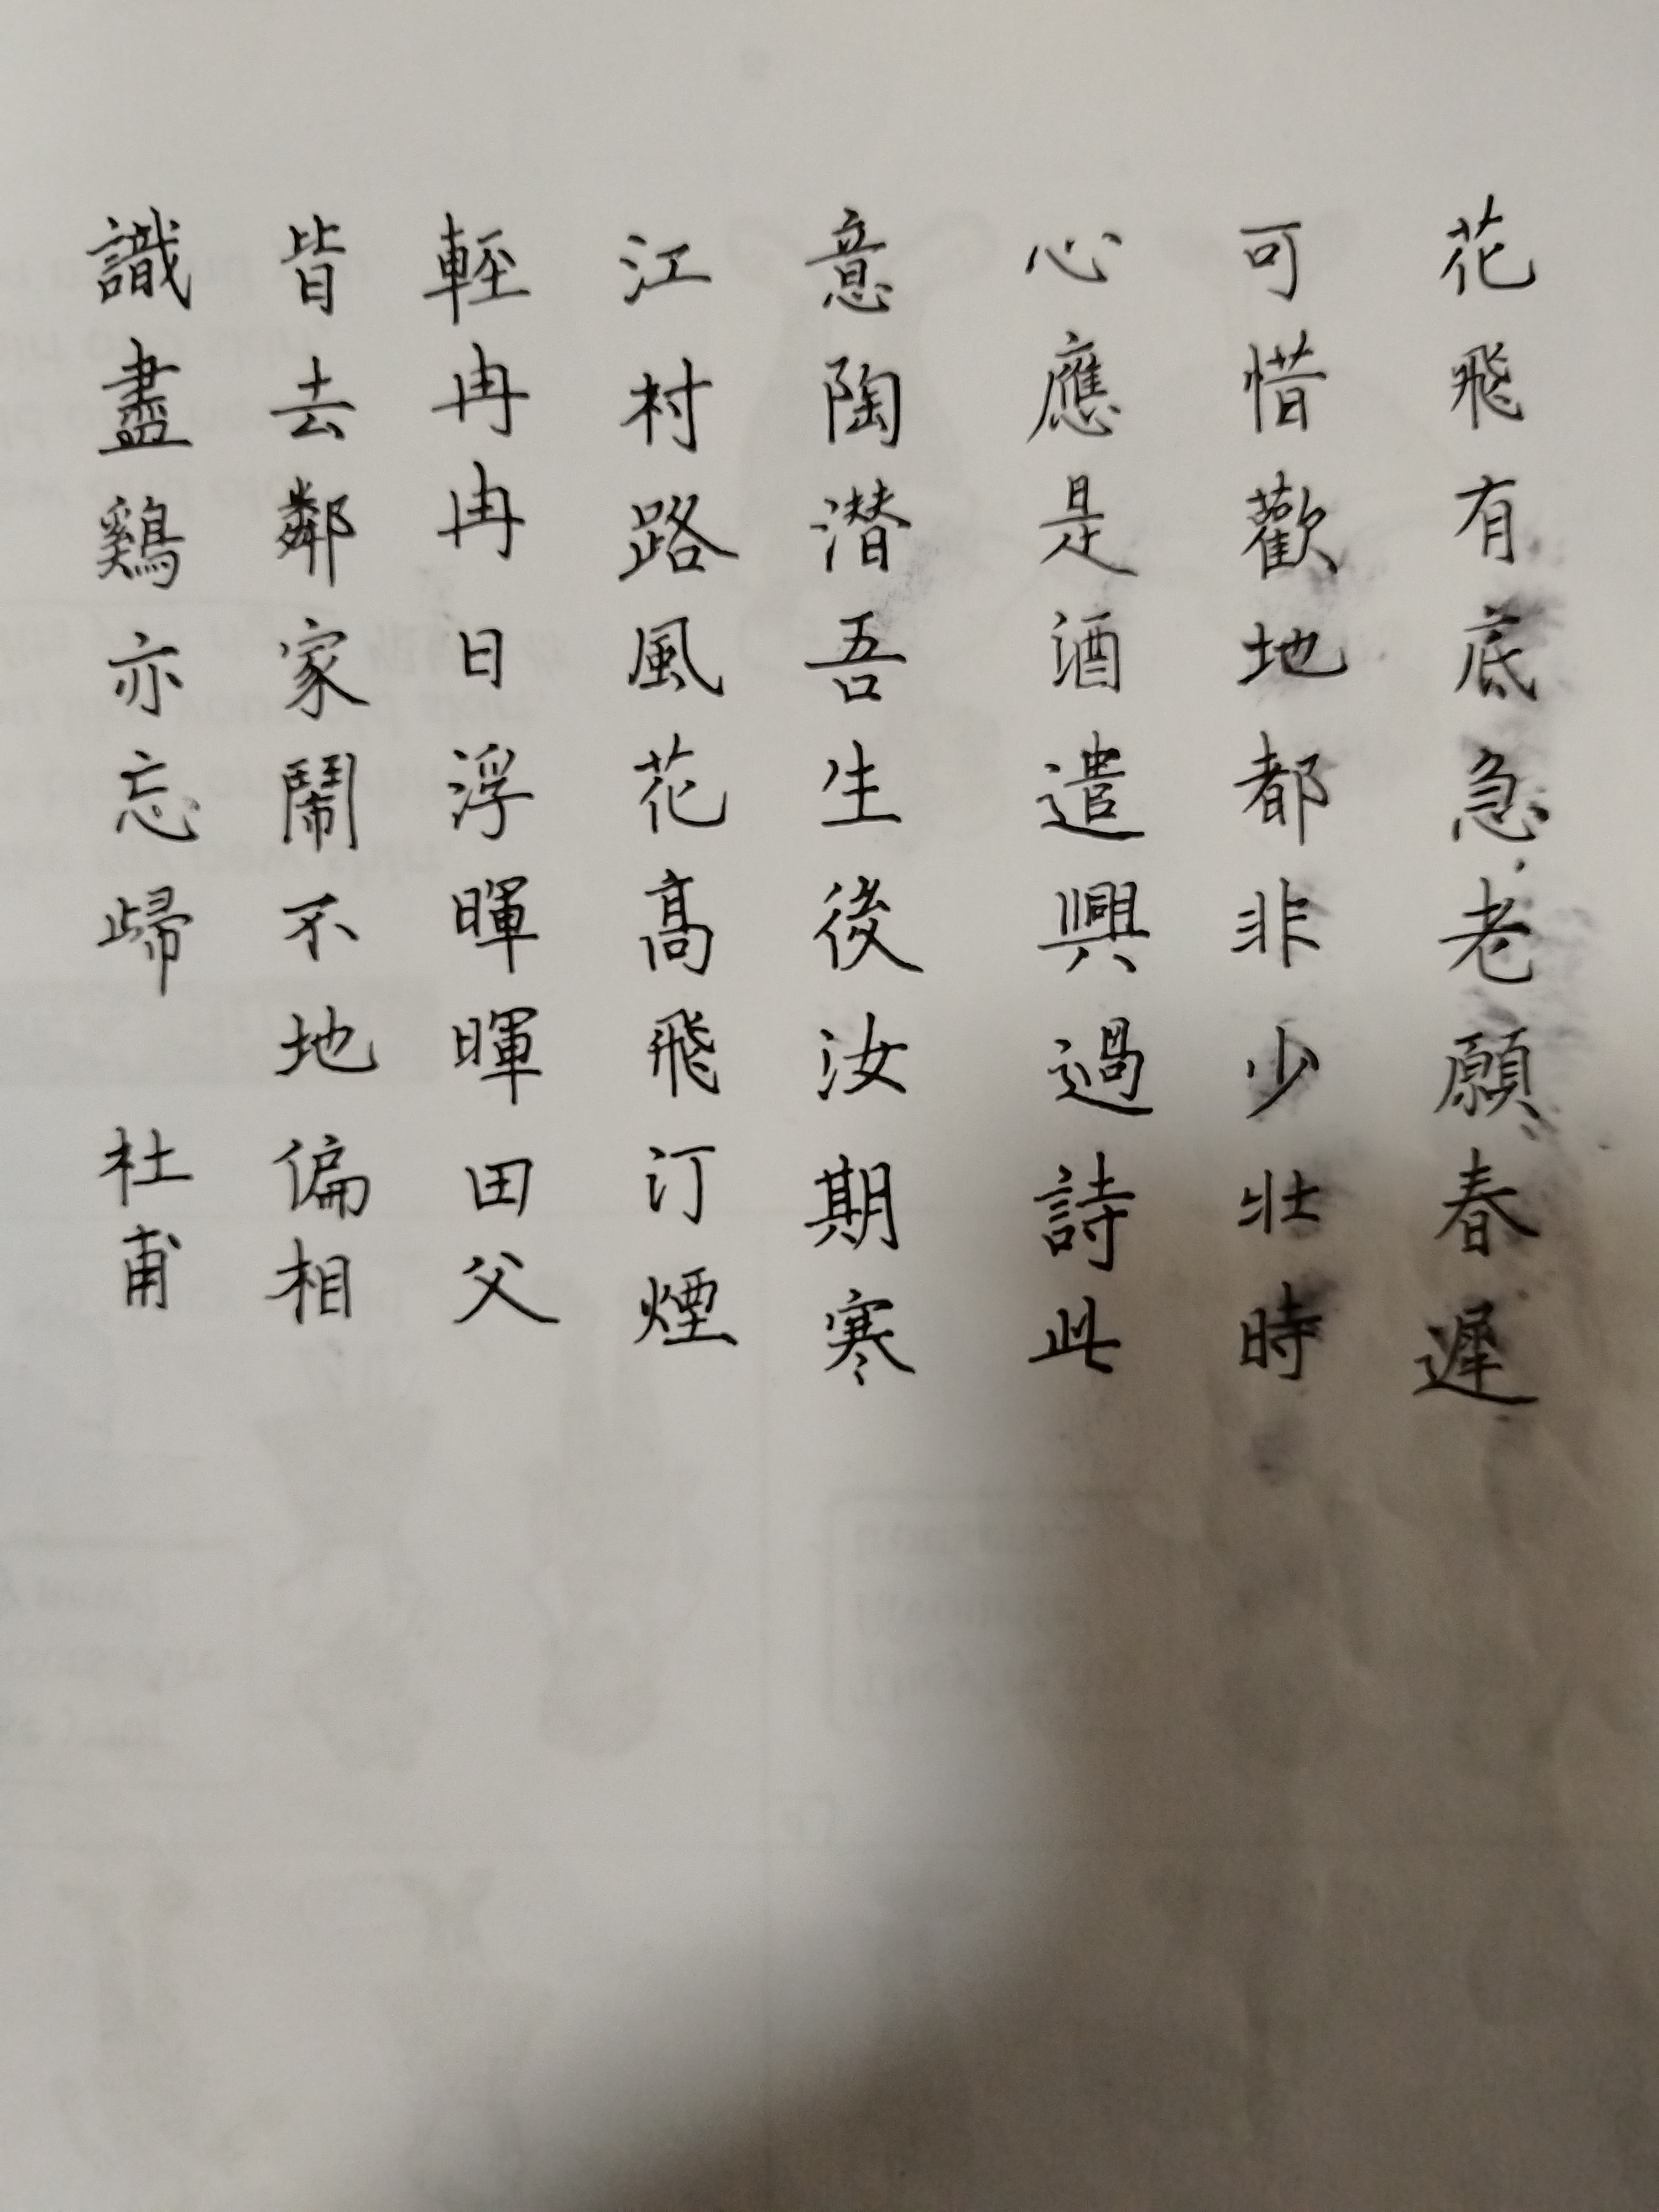 花飛有底急老願春遲
可惜歡地都非少壯時
心應是酒遣興過詩此
意陶潛吾生後汝期寒
江村路風花高飛汀煙
輕冉冉日浮暉暉田父
皆去鄰家鬧不地偏相
識盡鷄亦忘歸 杜甫